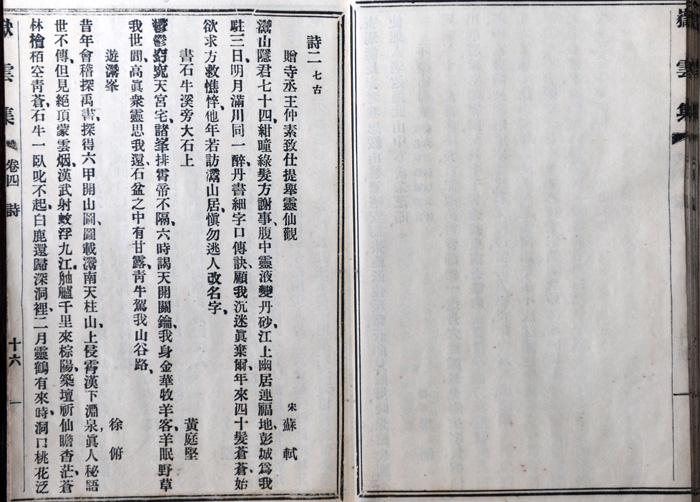 嶽雲集
詩二 七古
贈寺丞王仲素致仕提舉靈仙觀 宋 蘇軾
潛山隱君七十四紺瞳綠髮方謝事腹中靈液變丹砂江上幽居連福地彭城爲我
駐三日明月滿川同一醉丹書細字口傳訣顧我沉迷眞棄爾年來四十髮蒼蒼始
欲求方救憔悴他年若訪灊山居愼勿逃人改名字
書石牛溪旁大石上 黃庭堅
鬱鬱窈窕天官宅諸峯排霄帝不隔六時謁天開關鑰我身金華牧羊客羊眠野草
我世閒高眞衆靈思我還石盆之中有甘露靑牛駕我山谷路
遊灊峯 徐俯
昔年會稽探禹書探得六甲開山圖圖載灊南天柱山上侵霄漢下淵泉眞人秘語
世不傳但見絕頂蒙雲烟漢武射蛟浮九江舳艫千里來樅陽築壇祈仙瞻杳茫蒼
林檜栢空靑蒼石牛一臥叱不起白鹿還歸深洞裡二月靈鶴有來時洞口桃花泛
嶽雲集 卷四 詩 十六